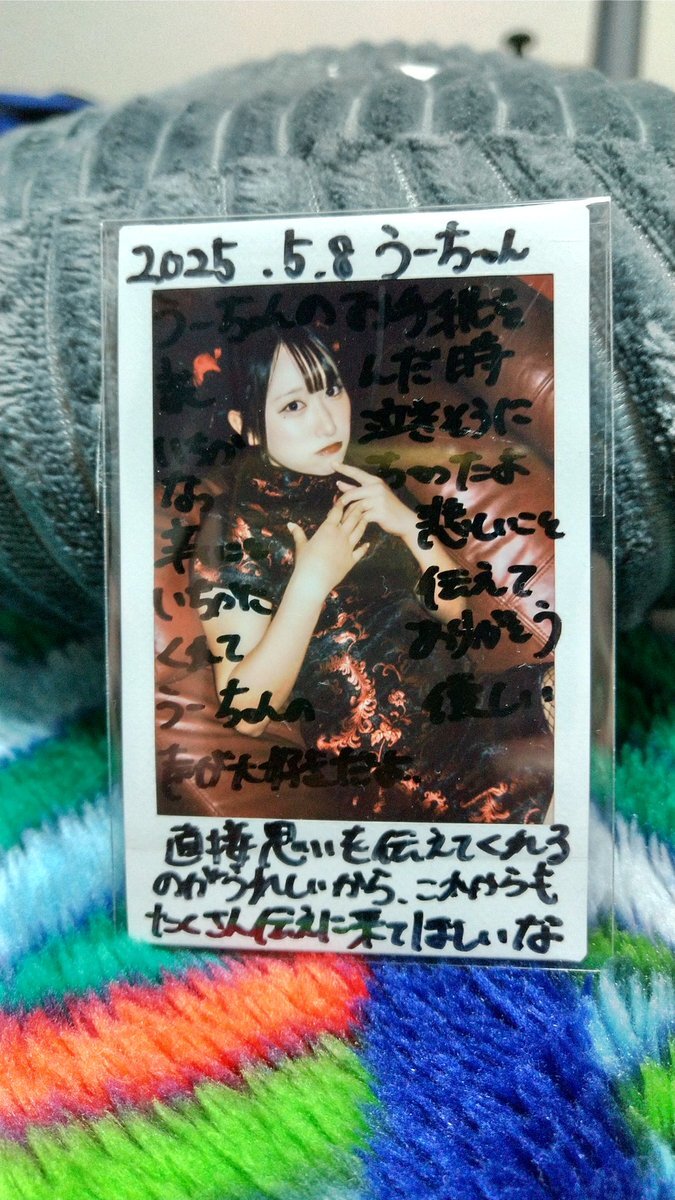 2025.5.8 うーちゃん
うーちゃんのお手紙を
んだ時
いちか 泣きそうに
なっ ちゃったよ
悲しいこと
いちかに 伝えて
くれて ありがとう
うーちゃんの 優しい
大好きだよ、
直接思いを伝えてくれる
のがうれしいから、これからも
たくさん伝えに来てほしいな